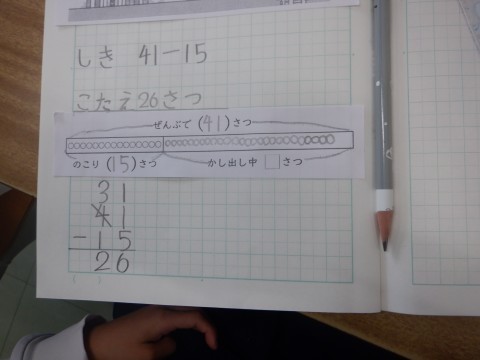 しき 41-15
こたえ26さつ
ぜんぶで(41)さつ
のこり(15)さつ かし出し中□さつ
31
41
-15
26